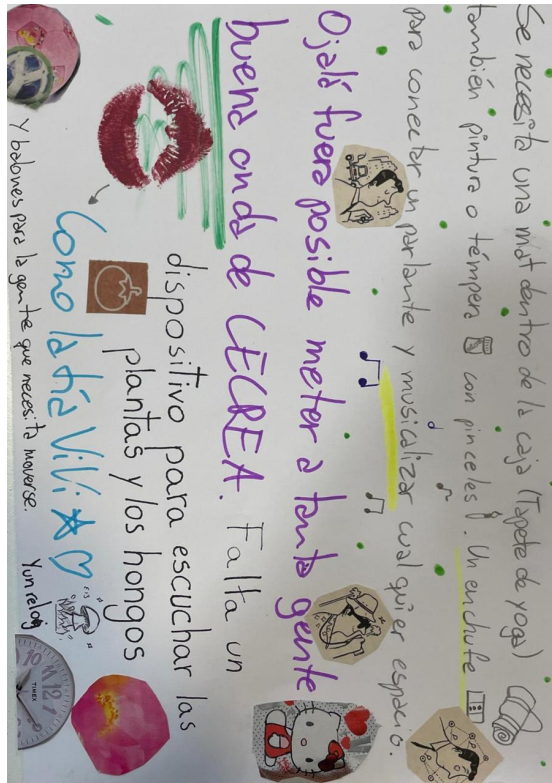 Se necesita una mat dentro de la caja (Tapete de yoga)
también pintura o témpera con pinceles. Un enchufe
para conectar un parlante y musicalizar cualquier espacio.
Ojalá fuera posible meter a tanta gente
buena onda de CECREA. Falta un
dispositivo para escuchar las
plantas y los hongos
Como la tía Vivi
Y balones para la gente que necesita moverse.
Y un reloj
TIMEX